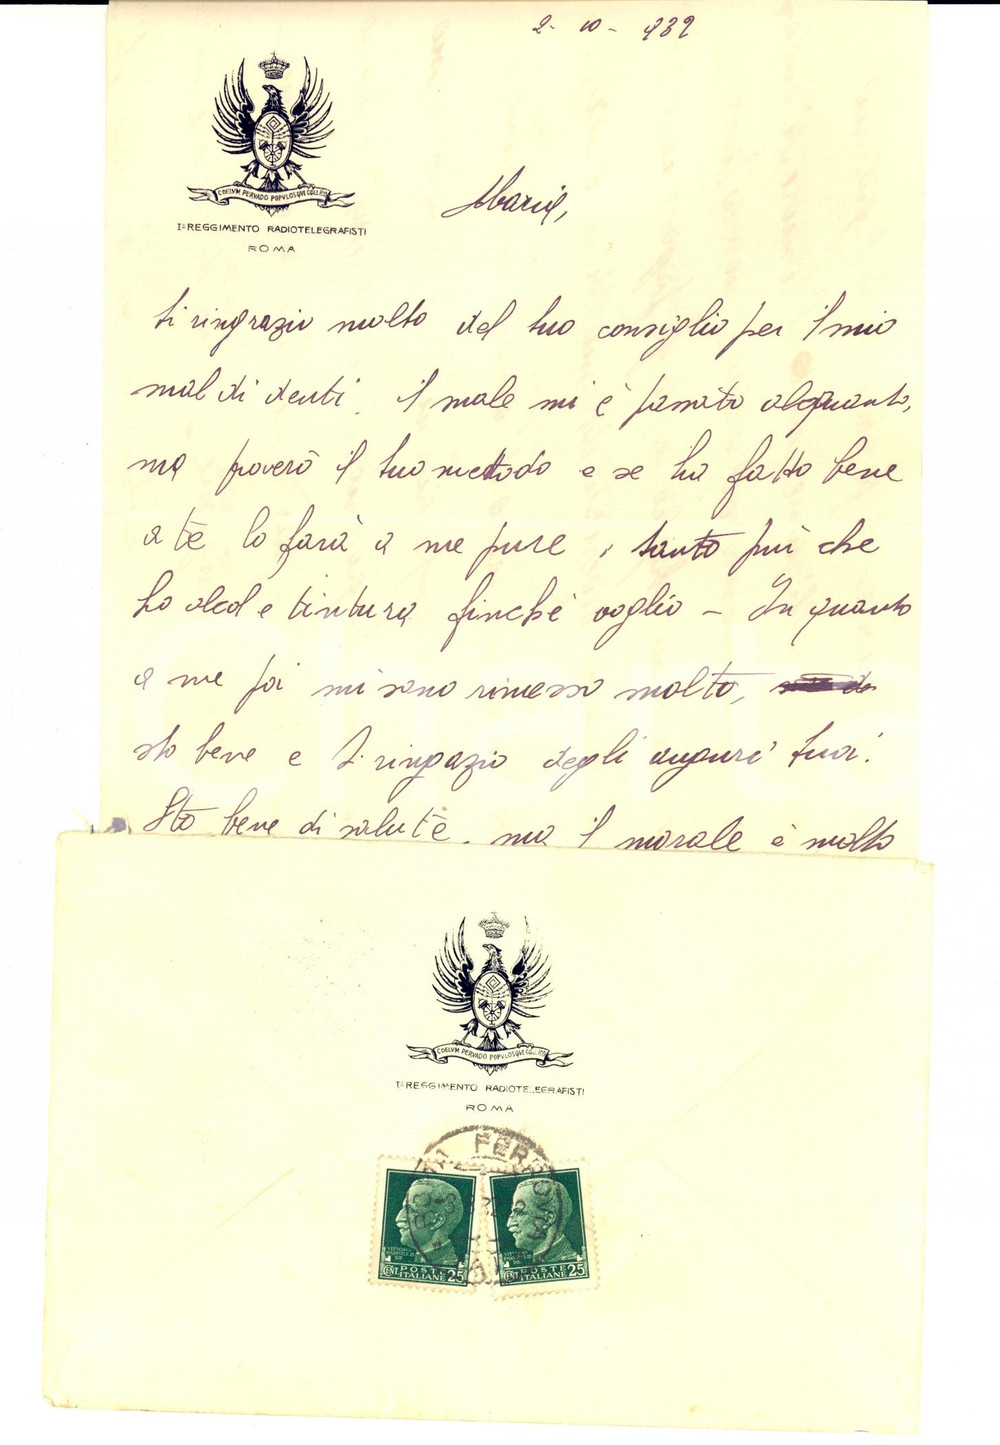 2 - 10 - 932
COELVM PERVADO POPVLOSQVE COLLIGO
1° REGGIMENTO RADIOTELEGRAFISTI
ROMA
Maria,
ti ringrazio molto del tuo consiglio per il mio
mal di denti. Il male mi è passato alquanto,
ma proverò il tuo metodo e se ha fatto bene
a tè lo farà a me pure, tanto più che
ho alcol e tintura finchè voglio - In quanto
a me poi mi sono rimesso molto,
sto bene e ti ringazio degli auguri tuoi.
Sto bene di salute, ma il morale è molto
COELVM PERVADO POPVLOSQVE COLLIGO
1° REGGIMENTO RADIOTELEGRAFISTI
ROMA
ROMA FERROVIA
VITTORIO EMANUELE III
CENT. POSTE ITALIANE 25
CENT. POSTE ITALIANE 25